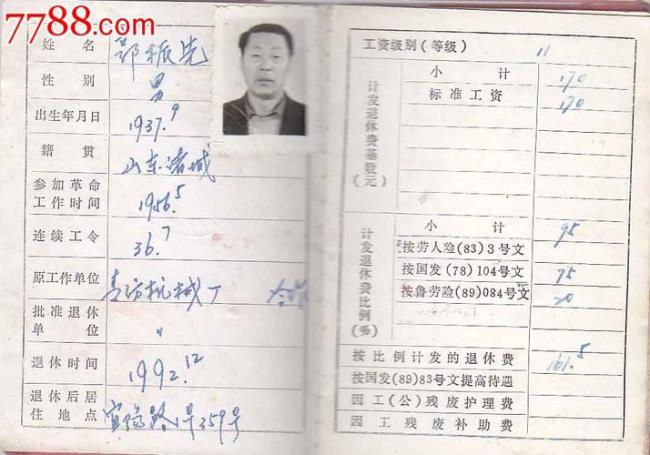 7788.com
姓名 郭振先
性别 男
出生年月日 1937.9
籍贯 山东诸城
参加革命工作时间 1956.5
连续工令 36.7
原工作单位 青纺机械厂
批准退休单位 〃
退休时间 1992.12
退休后居住地点 359号
工资级别(等级) 11
计发退休费基数(元)
小计 170
标准工资 170
计发退休费比例(%)
小计 95
按劳人险(83)3号文
按国发(78)104号文 75
按鲁劳险(89)084号文 20
按比例计发的退休费 161.5
按国发(89)83号文提高待遇
因工(公)残废护理费
因工残废补助费